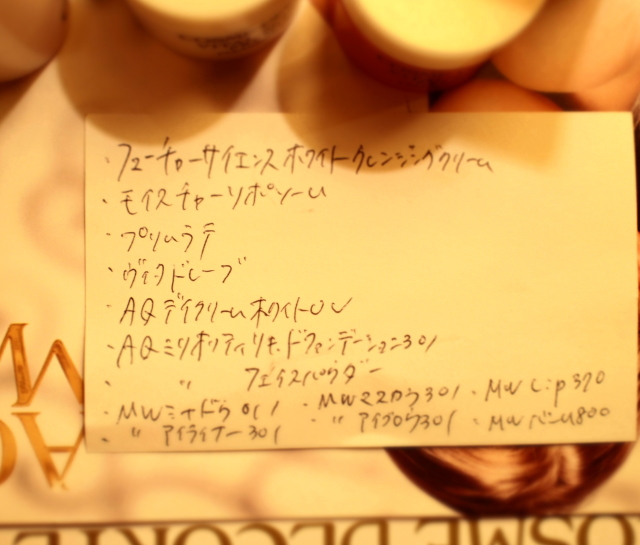 ・フューチャーサイエンス ホワイトクレンジングクリーム
・モイスチャーリポソーム
・プリムラテ
・ヴィタドレーブ
・AQ デイクリームホワイトUV
・AQ ミリオリティ リキッドファンデーション301
・ 〃 フェイスパウダー
・MWシャドウ011 ・MWマスカラ301 ・MW Lip 370
・ 〃 アイライナー301 ・ 〃 アイブロウ301 ・MW ベース800
COSME DECORTE
AQ
M